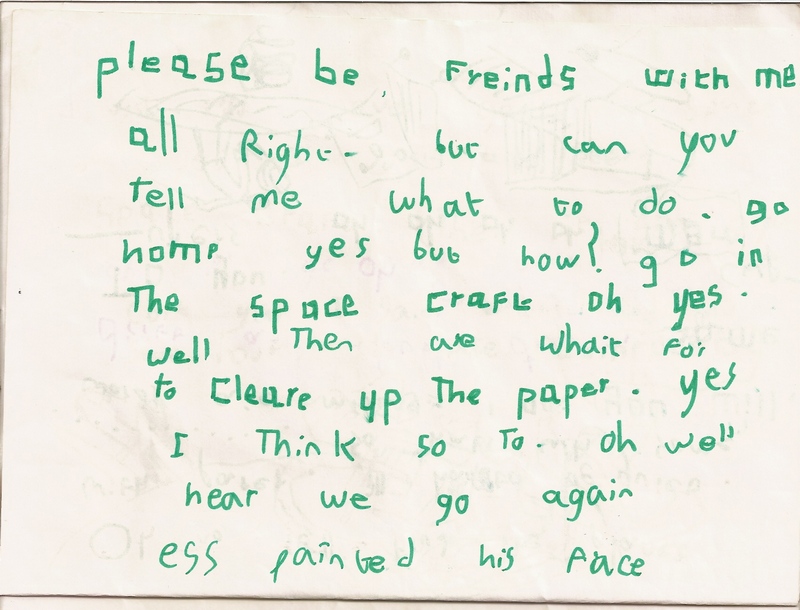 please be, Freinds with me
all Right - but can you
tell me what to do. go
home yes but how? go in
The space craft oh yes.
well Then are whait for
to Cleare yp The paper. yes
I Think so To. oh well
hear we go again
ess painted his face